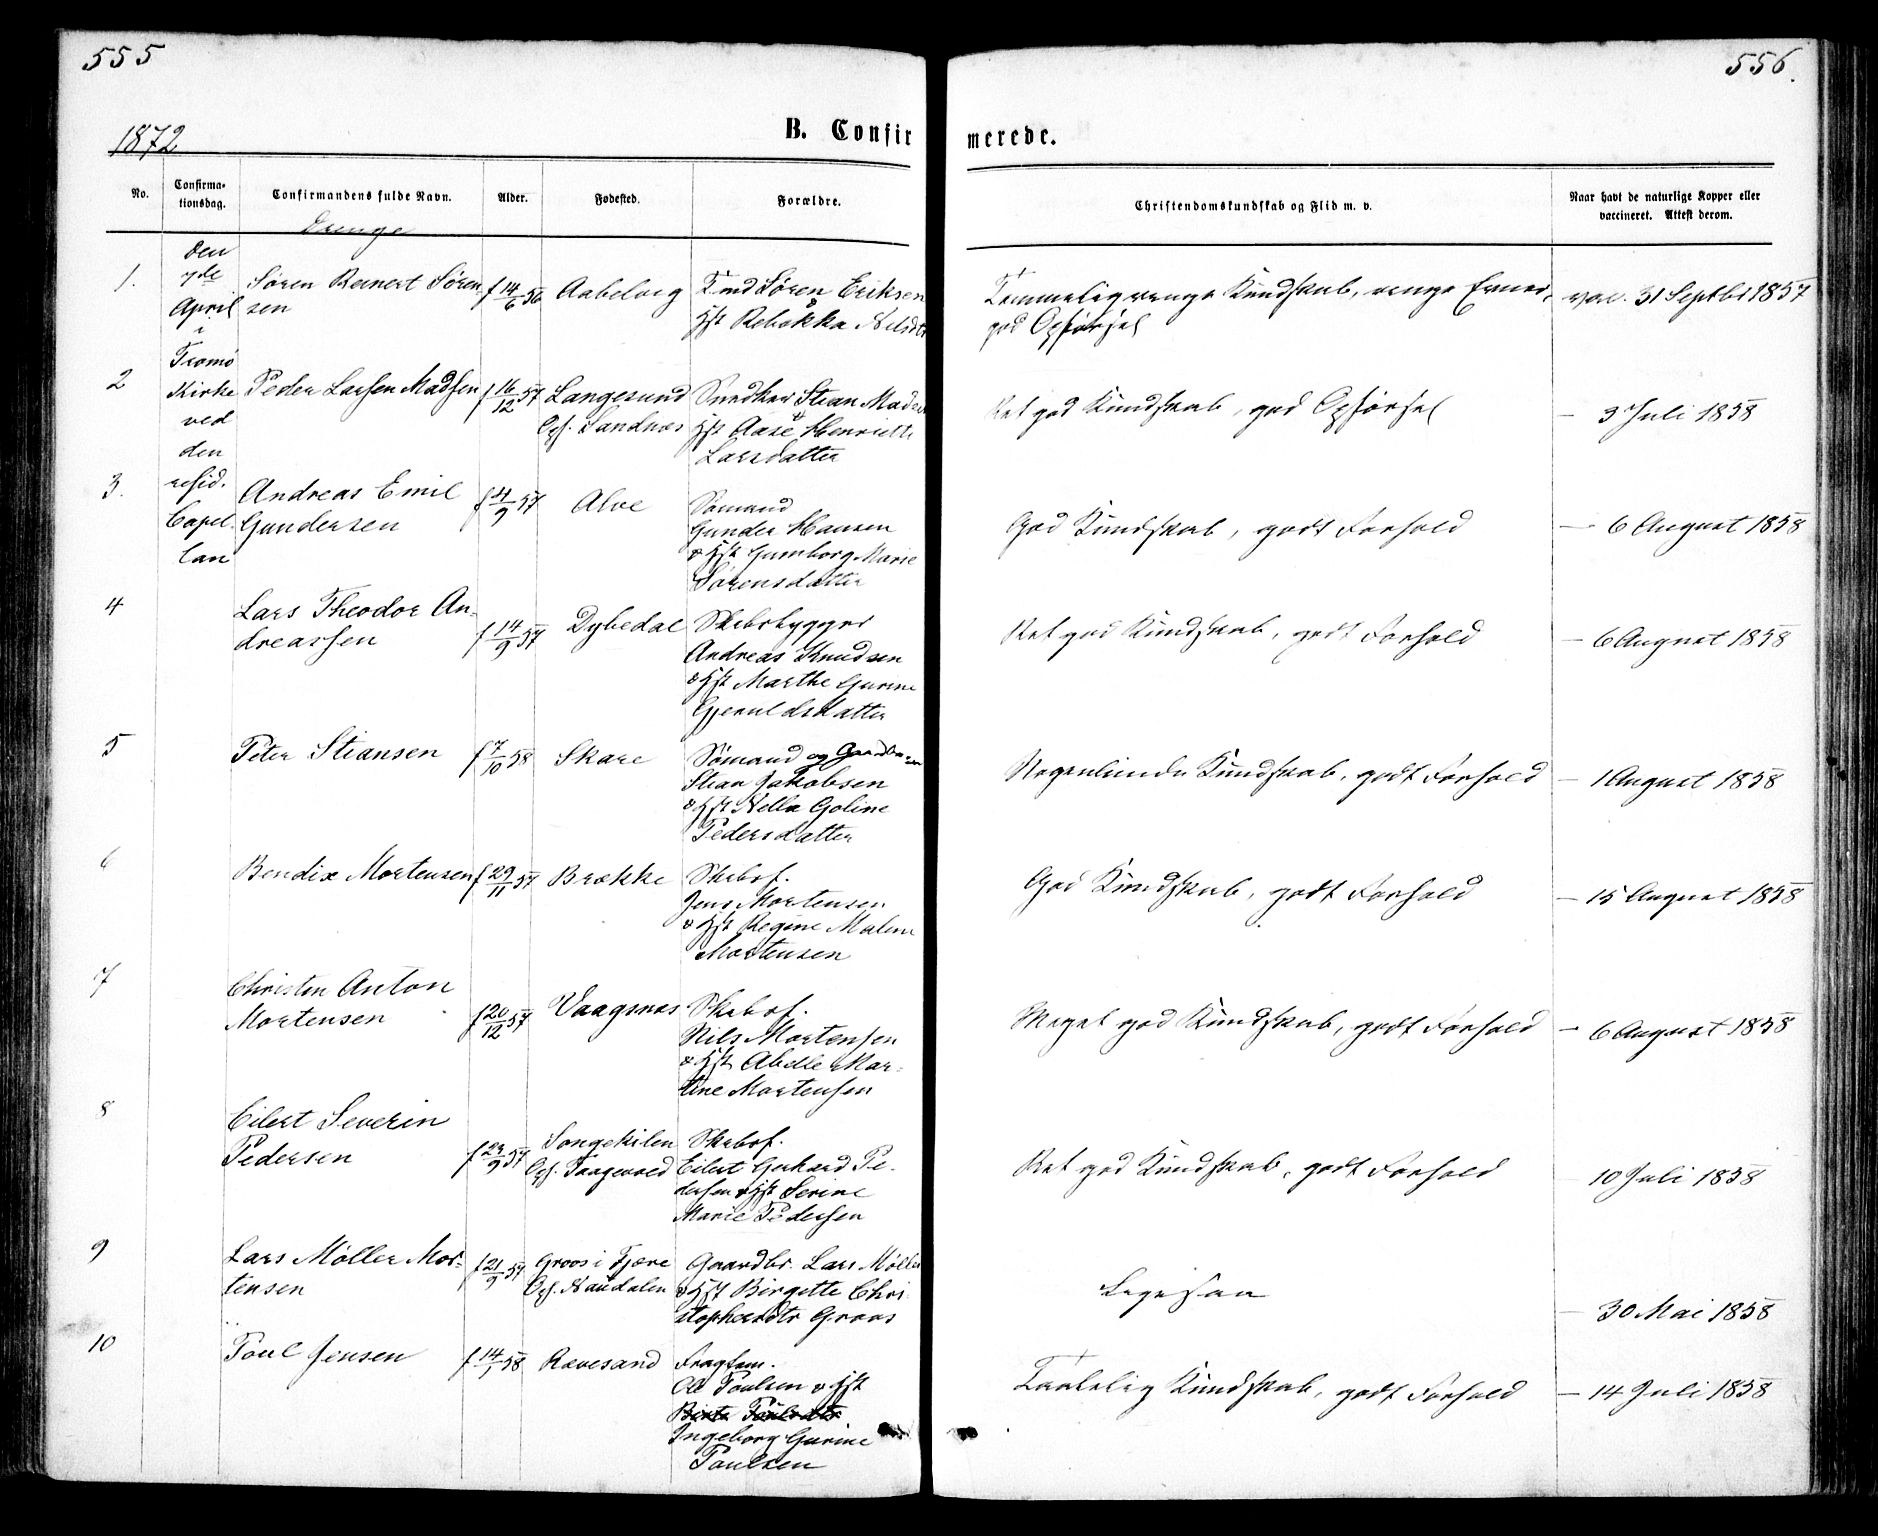 555
556.
1872
B. Confir
merede.
No.
Confirma-
tionsdag.
Confirmandens fulde Navn.
Alder.
Fødested.
Forældre.
Christendomskundskab og Flid m. v.
Naar havt de naturlige Kopper eller
vaccineret. Attest derom.
Drenge
Den
7de
April
i
Tromø
Kirke
ved
den
resid.
Capel
lan
1.
Søren Reinert Søren-
sen
f 14/6 56
Søren Eriksen
Hst Rebekka
Temmelig ringe Kundskab, ringe
god Opførsel
vac. 31 Septbr 1857
2
Peder Larsen Madsen
f 16/12 57
Langesund
Opf. Sandnæs
Stian Mads
Hst Aase Henriette
Larsdatter
Ret god Kundskab, god Opførsel
— 3 Juli 1858
3.
Andreas Emil
Gundersen
f 4/9 57
Alve
Sømand
Gunder Hansen
& Hst Gumborg Marie
Sørensdatter
God Kundskab, godt Forhold
— 6 August 1858
4
Lars Theodor An-
dreassen
f 14/9 57
Dybedal
Skibsbygger
Andreas Knudsen
& Hst Marthe Gurine
Gjeruldsdatter
Ret god Kundskab, godt Forhold
— 6 August 1858
5
Peter Stiansen
f 7/10 58
Skare
Sømand og
Stian Jakobsen
& Hst Nella Goline
Pedersdatter
Nogenlunde Kundskab, godt Forhold
— 1 August 1858
6
Bendix Mortensen
f 29/11 57
Brække
Skibsf.
Jens Mortensen
& Hst Regine Malene
Mortensen
God Kundskab, godt Forhold
— 15 August 1858
7
Christen Anton
Mortensen
f 20/12 57
Vaagsnæs
Skibsf.
Nils Mortensen
& Hst Abelle Mar-
tine Mortensen
Meget god Kundskab, godt Forhold
— 6 August 1858
8
Eilert Severin
Pedersen
f 23/9 57
Songekilen
Opf.
Skibsf.
Eilert Gerhard Pe-
dersen & Hst Serine
Marie Pedersen
Ret god Kundskab, godt Forhold
10 Juli 1858
9
Lars Møller Mor-
tensen
f 21/9 57
Groos i Fjære
Opf.
Gaardbr. Lars Møller
& Hst Birgette Chri
stophersdtr Groos
Ligesaa
— 30 Mai 1858
10
Poul Jensen
f 14/1 58
Revesand
Ole Poulsen & Hst
Ingeborg Gurine
Poulsen
Taalelig Kundskab, godt Forhold
— 14 Juli 1858